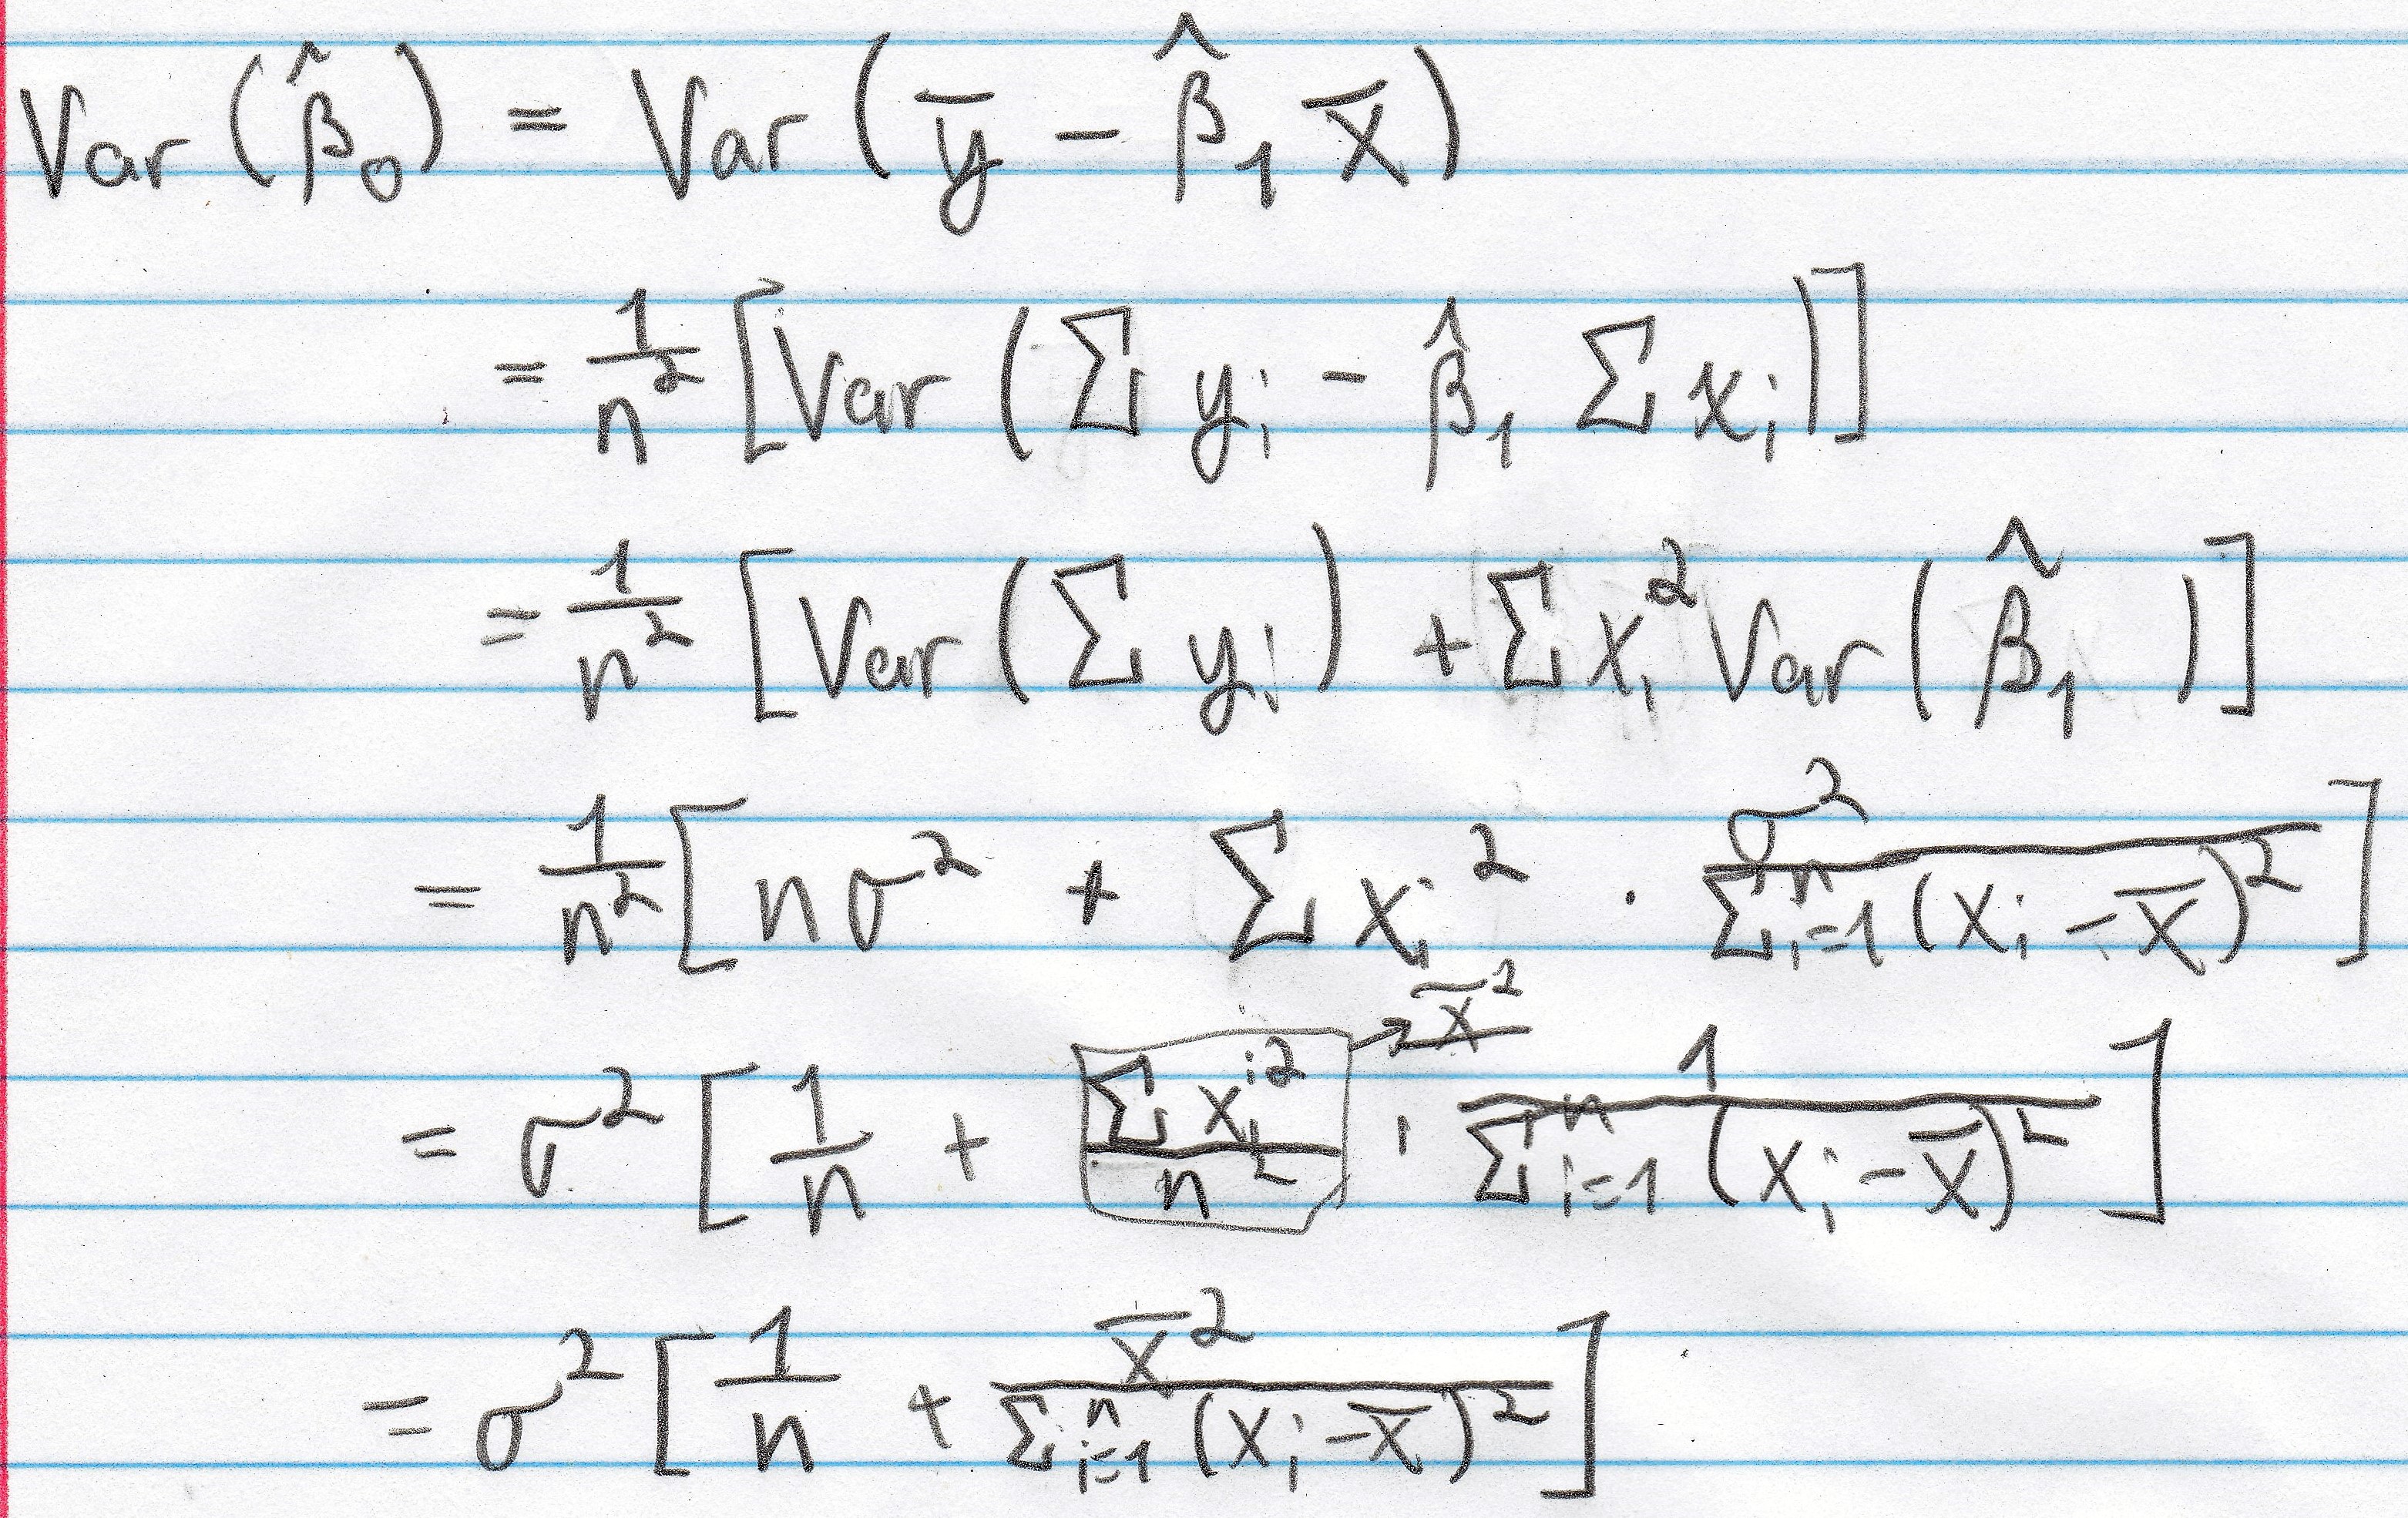 Var (β̂₀) = Var (y̅ − β̂₁ x̅)
= 1/n² [Var (Σ yᵢ − β̂₁ Σ xᵢ)]
= 1/n² [Var (Σ yᵢ) + Σ xᵢ² Var (β̂₁)]
= 1/n² [nσ² + Σ xᵢ² · σ²/Σⁿᵢ₌₁(xᵢ − x̅)²]
= σ² [1/n + Σ xᵢ²/n² → x̅² · 1/Σⁿᵢ₌₁(xᵢ − x̅)²]
= σ² [1/n + x̅²/Σⁿᵢ₌₁(xᵢ − x̅)²]